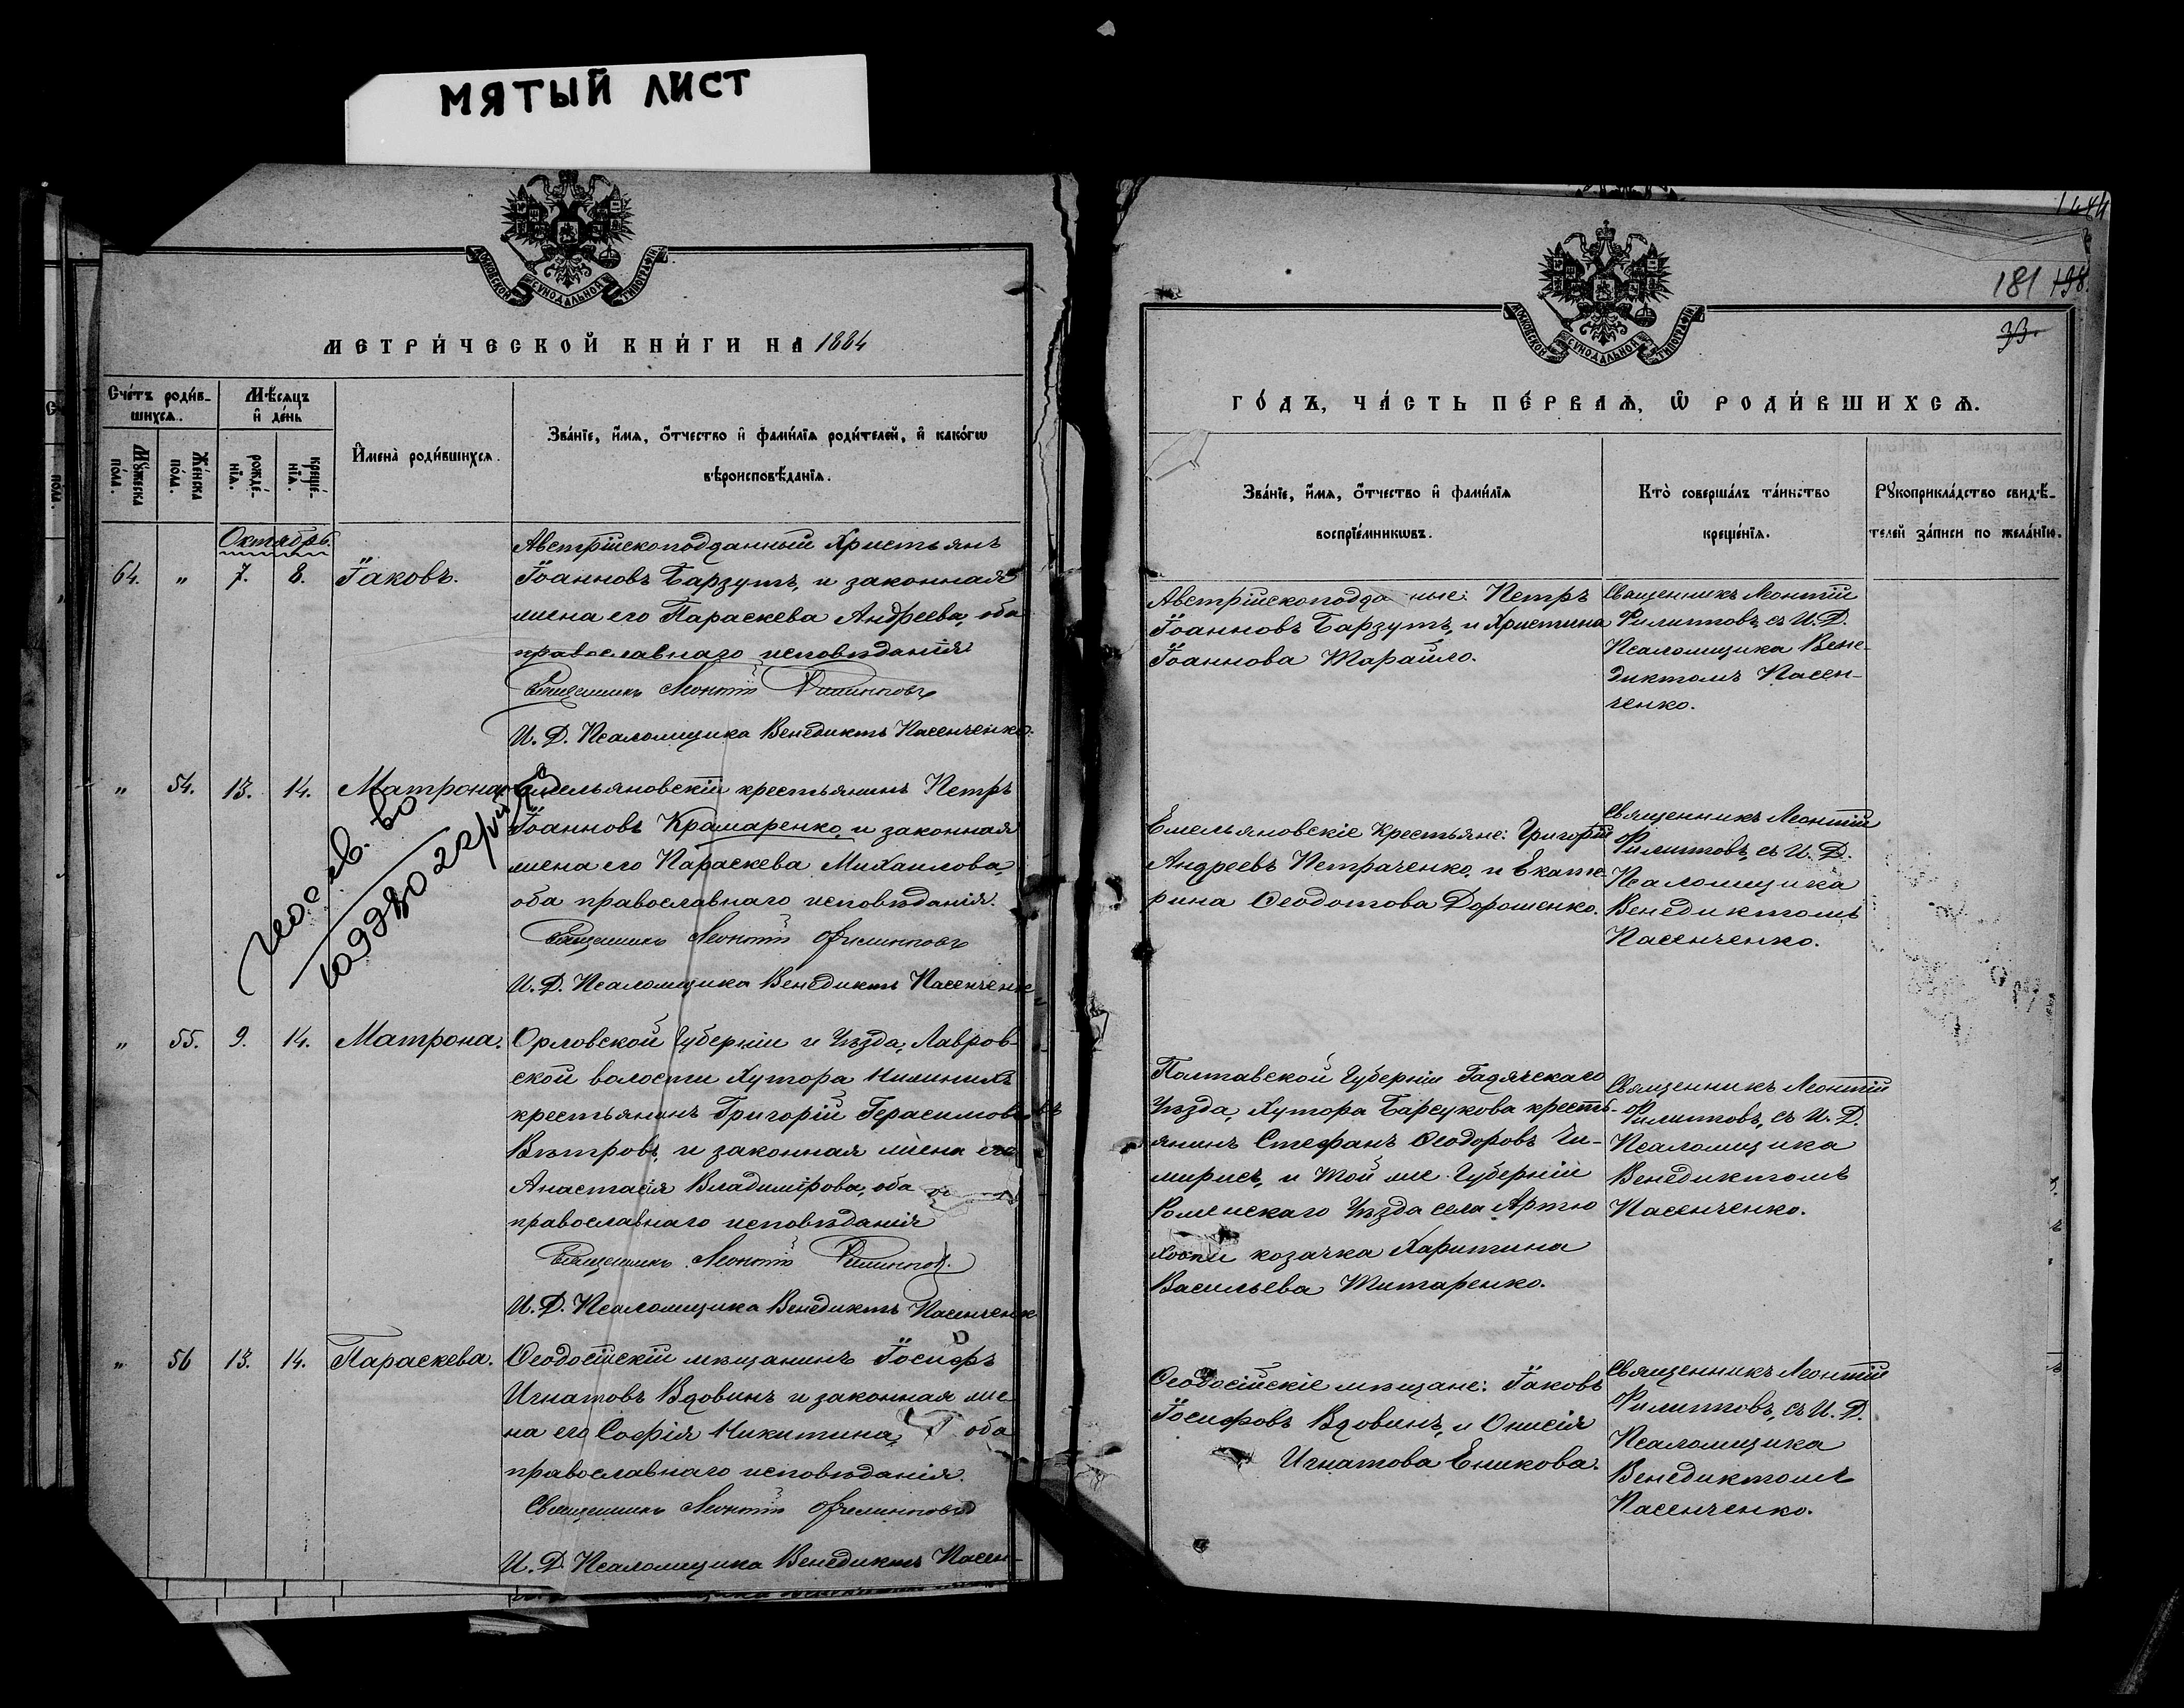 МЯТЫЙ ЛИСТ
МОСКОВСКОЙ СУНОДАЛЬНОЙ ТИПОГРАФІИ
МЕТРИ́ЧЕСКОЙ КНИ́ГИ НА 1884
Счéтъ роди́в-
шихсѧ.
Мꙋ́жеска
пóла.
Жéнска
пóла.
Мѣ́сѧцъ
и҆ дéнь
рождé-
нїѧ.
крещé-
нїѧ.
И҆менà роди́вшихсѧ.
Звáнїе, и҆́мѧ, ѻ҆́тчество и҆ фами́лїѧ роди́телей, и҆ какóгѡ
вѣроисповѣ́данїѧ.
Октябрь.
64. " 7. 8. Іаковъ.
Австрійскоподданный Христьянъ
Іоанновъ Барзутъ, и законная
жена его Параскева Андреева, оба
православнаго исповѣданія
Священникъ Леонтій Филипповъ
И. Д. Псаломщика Венедиктъ Пасенченко.
" 54. 13. 14. Матрона.
Емельяновскій крестьянинъ Петръ
Іоанновъ Крамаренко, и законная
жена его Параскева Михаилова,
оба православнаго исповѣданія.
Священникъ Леонтій Филипповъ
И. Д. Псаломщика Венедиктъ Пасенченко
" 55. 9. 14. Матрона.
Орловской Губерніи и Уѣзда, Лавров-
ской волости Хутора
крестьянинъ Григорій Герасимовъ
Вѣтровъ, и законная жена его
Анастасія Владимірова, оба
православнаго исповѣданія
Священникъ Леонтій Филипповъ.
И. Д. Псаломщика Венедиктъ Пасенченко
" 56 13. 14. Параскева.
Ѳеодосійскій мѣщанинъ Іосифъ
Игнатовъ Вдовинъ и законная же-
на его Софія Никитина, оба
православнаго исповѣданія.
Священникъ Леонтій Филипповъ
И. Д. Псаломщика Венедиктъ Пасен-
181 198.
33.
МОСКОВСКОЙ СУНОДАЛЬНОЙ ТИПОГРАФІИ
ГО́ДЪ, ЧА́СТЬ ПЕ́РВАѦ, Ѡ҆ РОДИ́ВШИХСѦ.
Звáнїе, и҆́мѧ, ѻ҆́тчество и҆ фами́лїѧ
воспрїéмникѡвъ.
Ктò совершáлъ тáинство
крещéнїѧ.
Рꙋкоприклáдство свидѣ́-
телей зáписи по желáнїю.
Австрійскоподданые: Петръ
Іоанновъ Барзутъ, и Христина
Іоаннова Тарайло.
Священникъ Леонтій
Филипповъ, съ И. Д.
Псаломщика Вене-
диктомъ Пасен-
ченко.
Емельяновскіе Крестьяне: Григорій
Андреевъ Петраченко, и Екате-
рина Ѳеодотова Дорошенко.
Священникъ Леонтій
Филипповъ, съ И. Д.
Псаломщика
Венедиктомъ
Пасенченко.
Полтавской Губерніи Гадячскаго
Уѣзда, Хутора Барсукова кресть-
янинъ Стефанъ Ѳеодоровъ Чи-
мирисъ, и той же Губерніи
Роменскаго Уѣзда села Артю
ховки козачка Харитина
Васильева Титаренко.
Священникъ Леонтій
Филипповъ, съ И. Д.
Псаломщика
Венедиктомъ
Пасенченко.
Ѳеодосійскіе мѣщане: Іаковъ
Іосифовъ Вдовинъ, и Онисія
Игнатова Еникова.
Священникъ Леонтій
Филипповъ, съ И. Д.
Псаломщика
Венедиктомъ
Пасенченко.